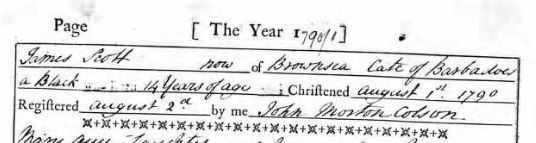 Page [ The Year 1790/1 ]
James Scott now of Brownsea Late of Barbadoes
a Black 14 Years of age : Christened august 1st. 1790
Registered august 2d by me John Morton Colson.